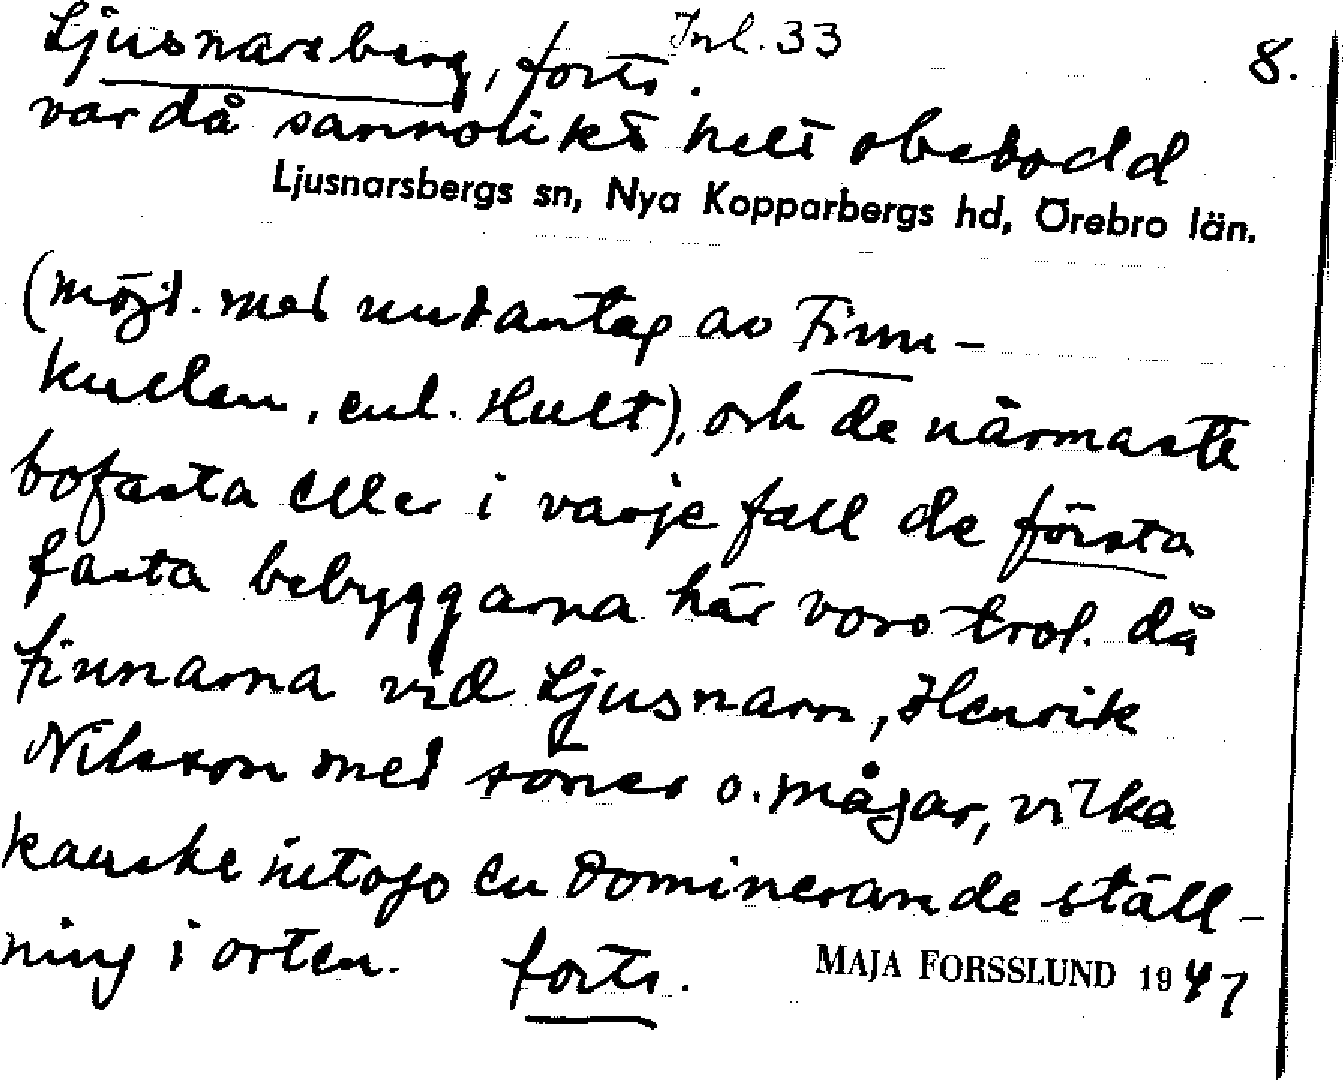 Ljusnarsberg, forts. Inl. 33 8.
var då sannolikt helt obebodd
Ljusnarsbergs sn, Nya Kopparbergs hd, Örebro län.
(möjl. med undantag av Finn-
kullen, enl. Hult), och de närmaste
bofasta eller i varje fall de första
fasta bebyggarna här voro trol. då
finnarna vid Ljusnarn, Henrik
Nilsson med söner o. mågar, vilka
kanske intogo en dominerande ställ-
ning i orten. forts. MAJA FORSSLUND 1947